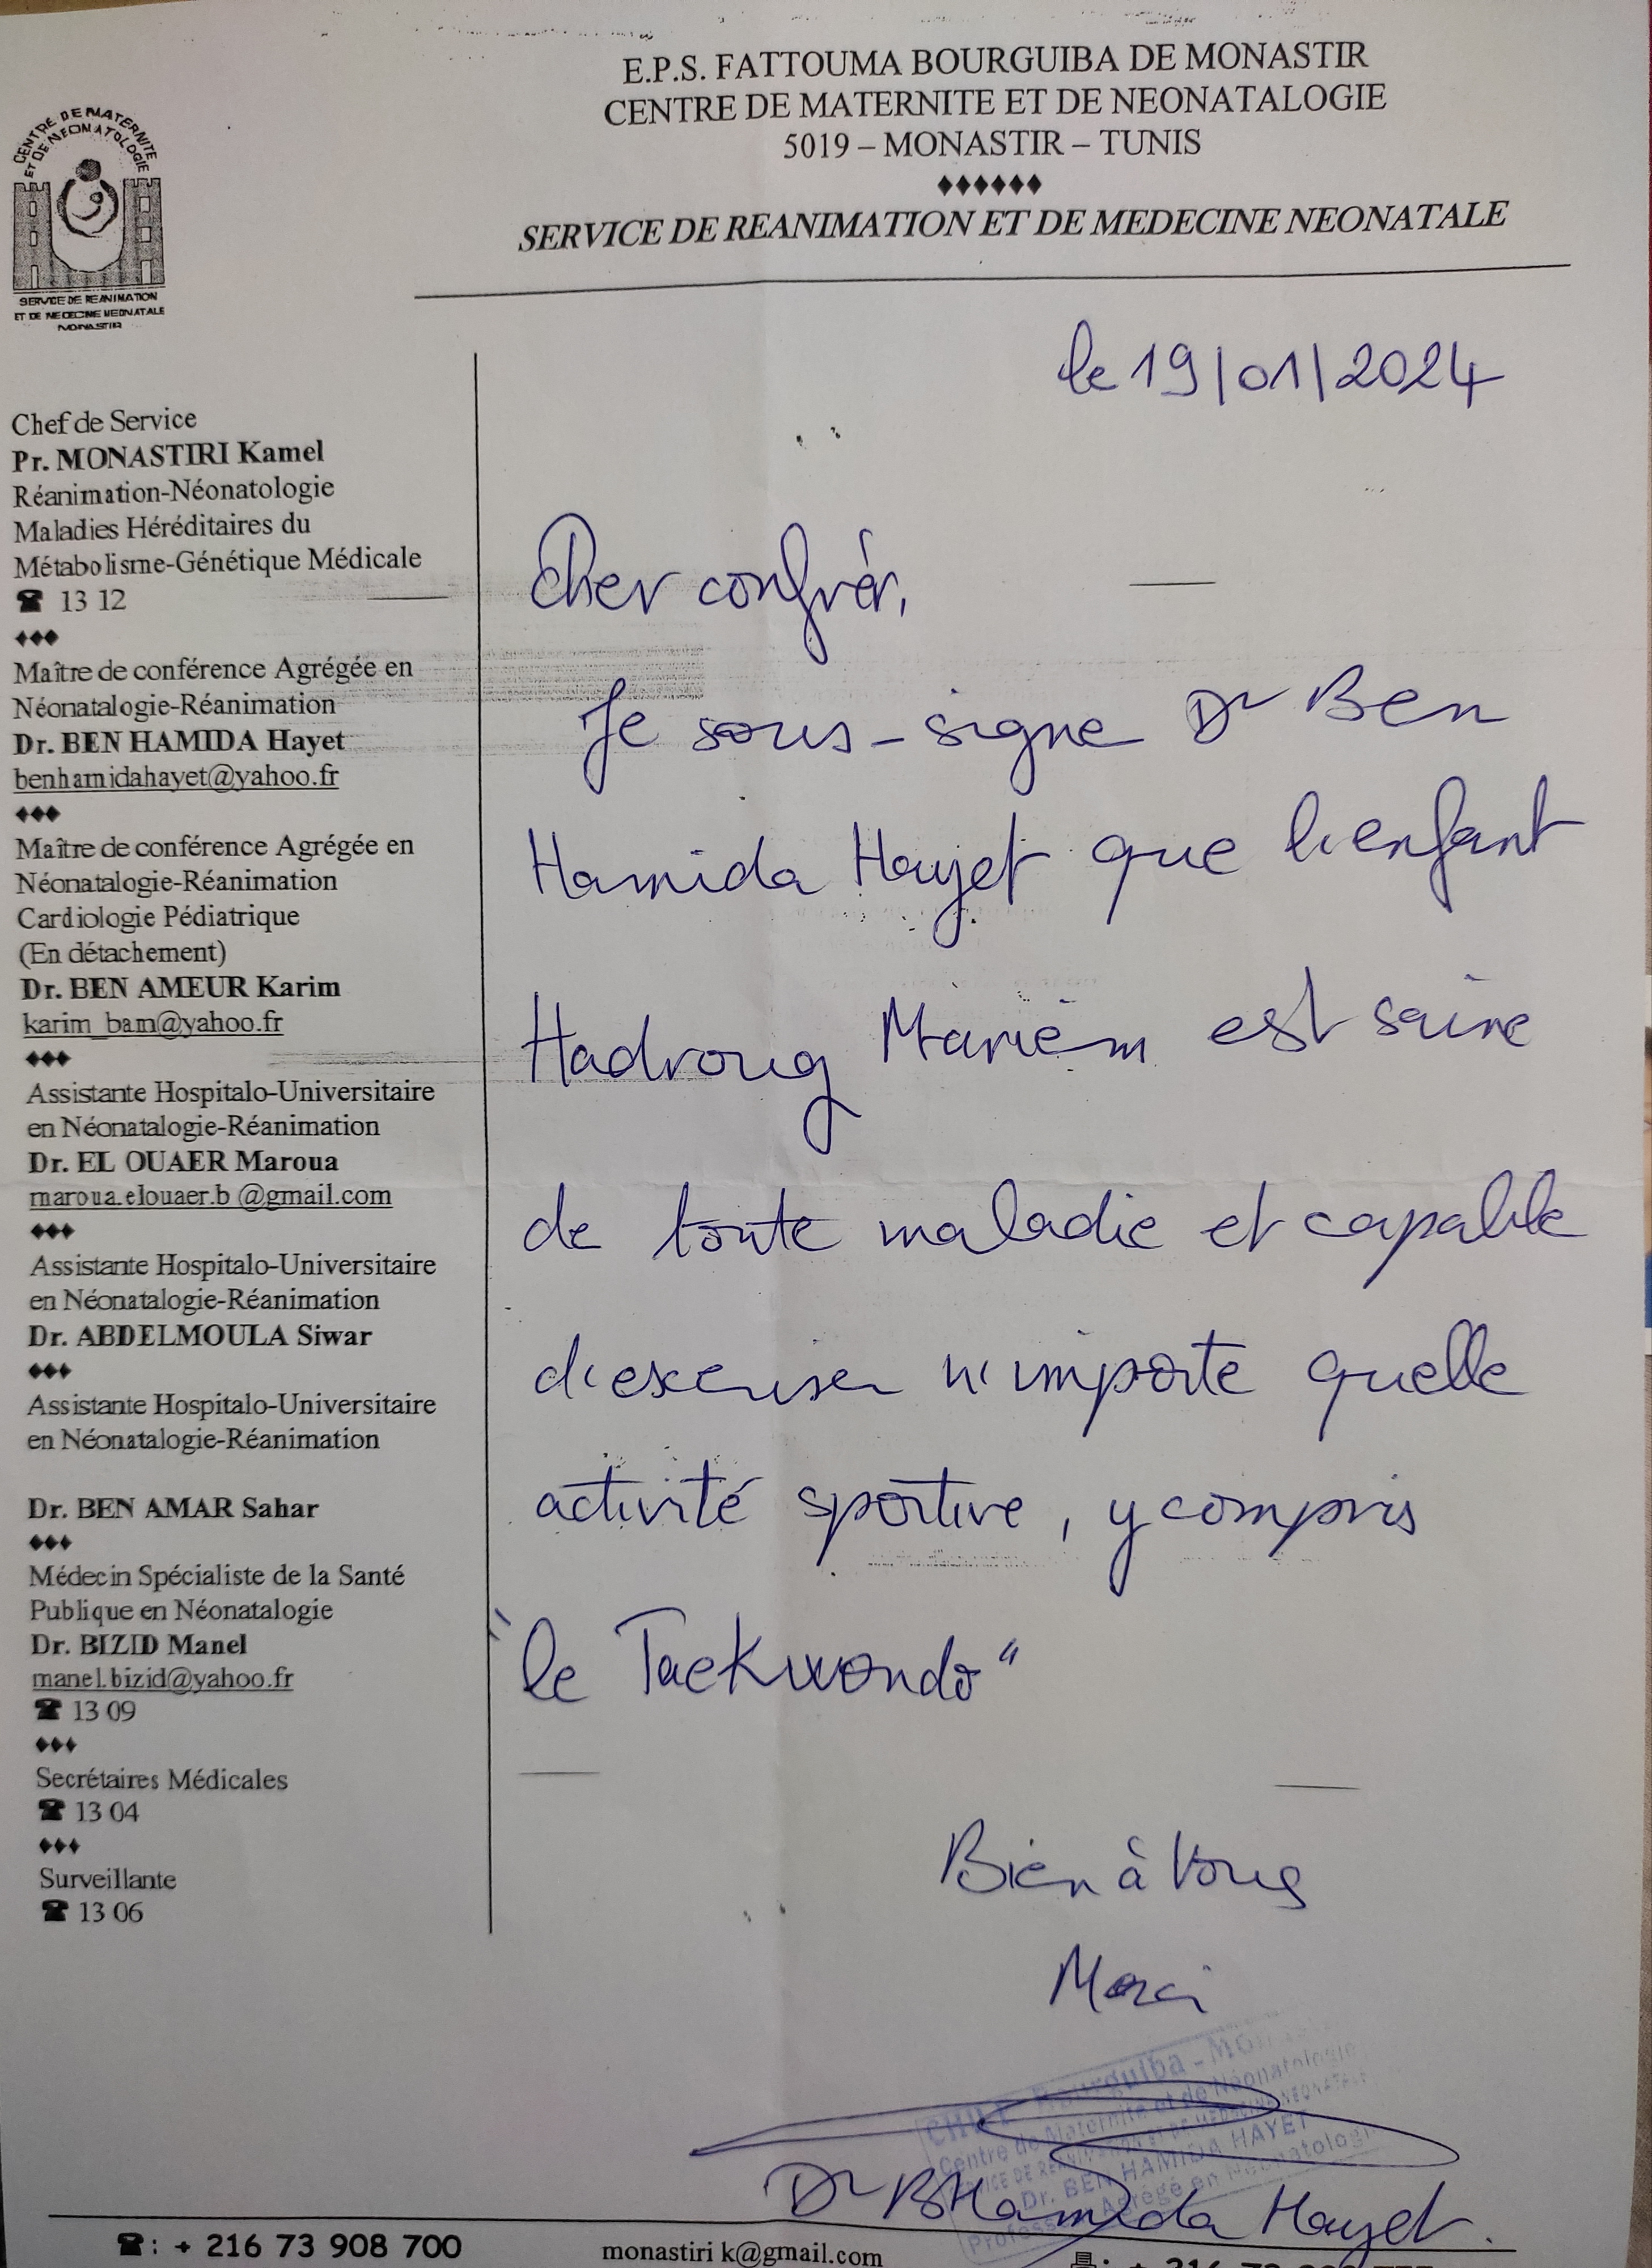 E.P.S. FATTOUMA BOURGUIBA DE MONASTIR
CENTRE DE MATERNITE ET DE NEONATALOGIE
5019 – MONASTIR – TUNIS
♦♦♦♦♦♦
SERVICE DE REANIMATION ET DE MEDECINE NEONATALE
CENTRE DE MATERNITE
ET DE NEONATOLOGIE
SERVICE DE REANIMATION
ET DE MEDECINE NEONATALE
MONASTIR
Chef de Service
Pr. MONASTIRI Kamel
Réanimation-Néonatologie
Maladies Héréditaires du
Métabolisme-Génétique Médicale
☎ 13 12
♦♦♦
Maître de conférence Agrégée en
Néonatalogie-Réanimation
Dr. BEN HAMIDA Hayet
benhamidahayet@yahoo.fr
♦♦♦
Maître de conférence Agrégée en
Néonatalogie-Réanimation
Cardiologie Pédiatrique
(En détachement)
Dr. BEN AMEUR Karim
karim_bam@yahoo.fr
♦♦♦
Assistante Hospitalo-Universitaire
en Néonatalogie-Réanimation
Dr. EL OUAER Maroua
maroua.elouaer.b @gmail.com
♦♦♦
Assistante Hospitalo-Universitaire
en Néonatalogie-Réanimation
Dr. ABDELMOULA Siwar
♦♦♦
Assistante Hospitalo-Universitaire
en Néonatalogie-Réanimation
Dr. BEN AMAR Sahar
♦♦♦
Médecin Spécialiste de la Santé
Publique en Néonatalogie
Dr. BIZID Manel
manel.bizid@yahoo.fr
☎ 13 09
♦♦♦
Secrétaires Médicales
☎ 13 04
♦♦♦
Surveillante
☎ 13 06
le 19/01/2024
Cher confrèr,
Je sous-signe Dr Ben
Hamida Hayet que l'enfant
Hadroug Mariem est saine
de toute maladie et capable
d'exerciser n'importe quelle
activité sportive, y compris
"le Taekwondo"
Bien à Vous
Merci
Bourguiba -
Centre de Maternité et de Néonatologie
SERVICE DE REANIMATION ET DE MEDECINE NEONATALE
Dr. BEN HAMIDA HAYET
Agrégé en Néonatologie
Dr BHamida Hayet.
☎: + 216 73 908 700
monastiri k@gmail.com